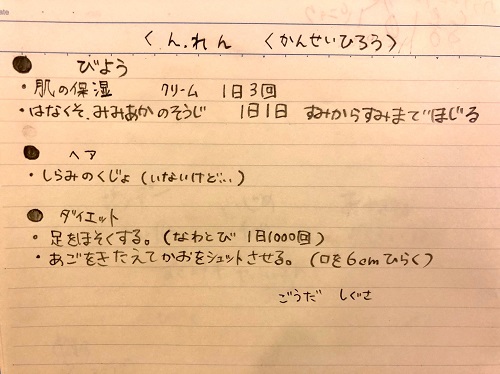 くん.れん 〈かんせいひろう〉
● びよう
・肌の保湿 クリーム 1日3回
・はなくそ、みみあかのそうじ 1日1日 すみからすみまでほじる
● ヘア
・しらみのくじょ(いないけど...)
● ダイエット
・足をほそくする。(なわとび 1日1000回)
・あごをきたえてかおをシュットさせる。(口を6cmひらく)
ごうだ しぐさ